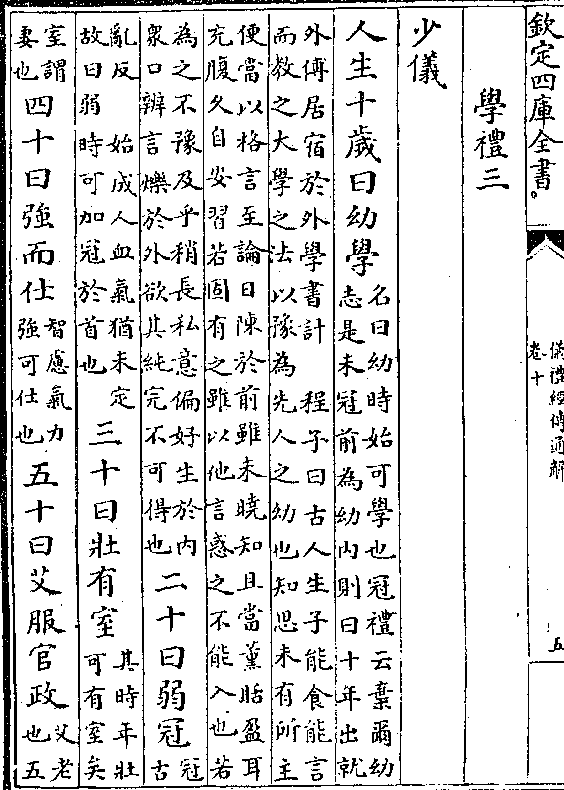 欽定四庫全書。
儀禮經傳通解
卷十
五
學禮三
少儀
人生十歲曰幼學
名曰幼時始可學也冠禮云棄爾幼
志是未冠前為幼内則曰十年出就
外傅居宿於外學書計 程子曰古人生子能食能言
而教之大學之法以豫為先人之幼也知思未有所主
便當以格言至論日陳於前雖未曉知且當薰聒盈耳
充腹久自安習若固有之雖以他言惑之不能入也若
為之不豫及乎稍長私意偏好生於内
衆口辨言爍於外欲其純完不可得也
二十曰弱冠
冠
古
亂反 始成人血氣猶未定
故曰弱時可加冠於首也
三十曰壯有室
其時年壯
可有室矣
室謂
妻也
四十曰強而仕
智慮氣力
強可仕也
五十曰艾服官政
艾老
也五